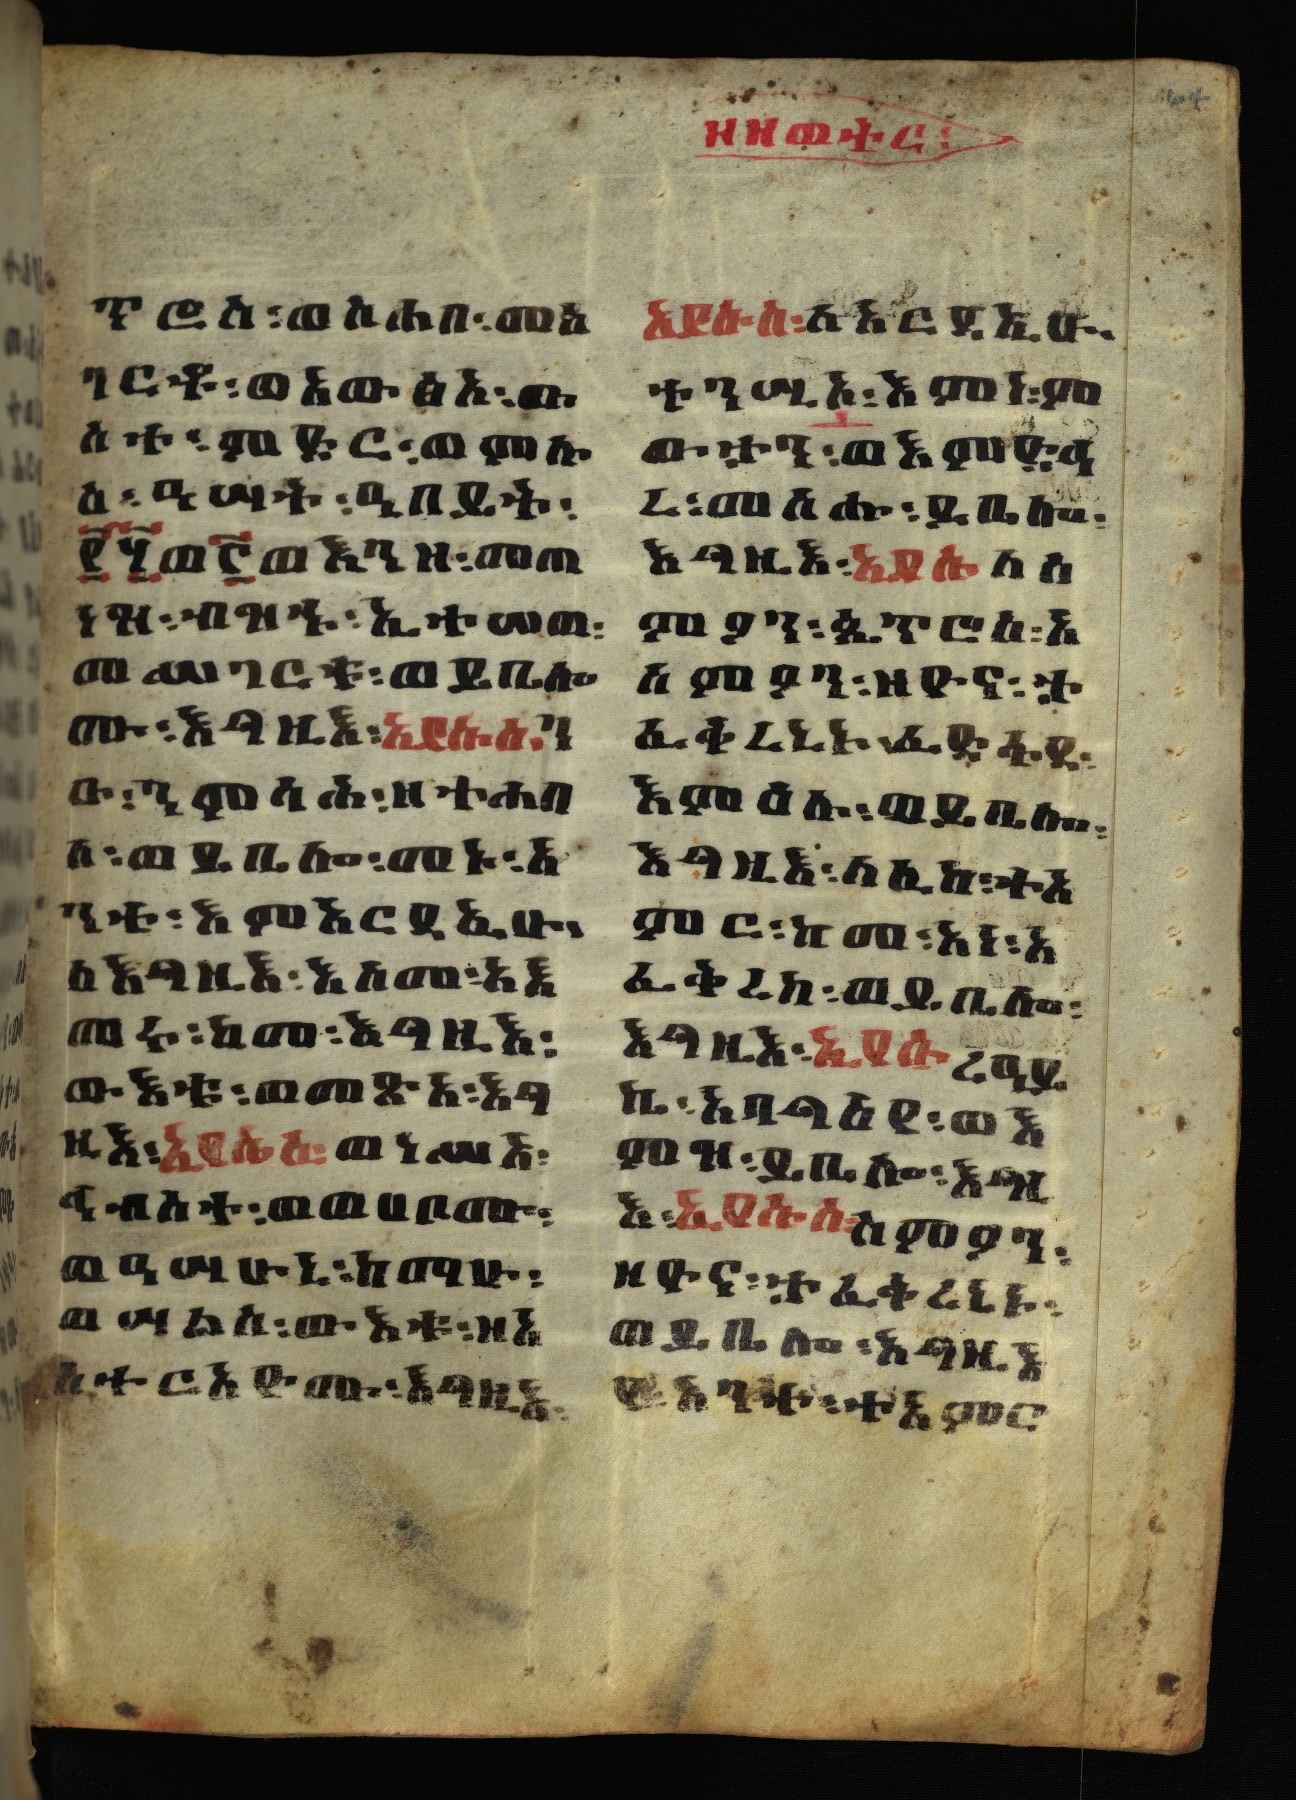 ዘዘወትር፡
ጥሮስ፡ወሰሐበ፡መስ
ገርቶ፡ወእውፅአ፡ው
ስተ፡ምድር፡ወምሉ
ስ፡ዓሣት፡ዓበይት፡
፻፶ወ፫ወእንዘ፡መጠ
ነዝ፡ብዝኁ፡ኢተሠጠ፡
መሣገርቱ፡ወይቤሎ
ሙ፡እግዚእ፡ኢየሱስ፡ን
ዑ፡ንምሳሕ፡ዘተሐበ
ለ፡ወይቤሎ፡መኑ፡አ
ንተ፡እምአርዳኢሁ፡
ለእግዚእ፡እስመ፡አእ
መሩ፡ከመ፡እግዚእ፡
ውእቱ፡ወመጽአ፡እግ
ዚእ፡ኢየሱስ፡ወነሥአ፡
ኅብስተ፡ወወሀቦሙ፡
ወዓሣሁኒ፡ከማሁ፡
ወሣልስ፡ውእቱ፡ዘአ
ስተርአዮሙ፡እግዚእ፡
ኢየሱስ፡ለአርዳኢሁ፡
ተንሢኦ፡እምነ፡ም
ውታን፡ወእምድኅ
ረ፡መስሑ፡ይቤሎ፡
እግዚእ፡ኢየሱስ
ምዖን፡ጴጥሮስ፡አ
ስምዖን፡ዘዮና፡ት
ፈቅረኒኑ፡ፈድፋደ፡
እምዕሉ፡ወይቤሎ፡
እግዚእ፡ለሊከ፡ተአ
ምር፡ከመ፡አነ፡አ
ፈቅረከ፡ወይቤሎ፡
እግዚእ፡ኢየሱ ረዓይ
ኬ፡አባግዕየ፡ወእ
ምዝ፡ይቤሎ፡እግዚ
እ፡ኢየሱስ፡ስምዖን፡
ዘዮና፡ትፈቅረኒኑ፡
ወይቤሎ፡እግዚእ
አንተ፡ተአምር